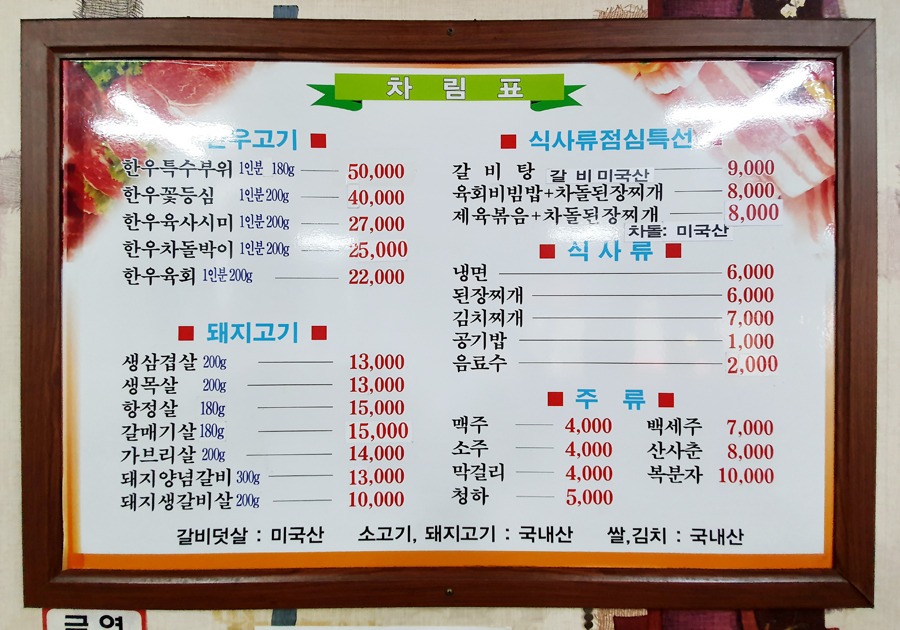 차 림 표
한우고기
한우특수부위 1인분 180g 50,000
한우꽃등심 1인분 200g 40,000
한우육사시미 1인분 200g 27,000
한우차돌박이 1인분 200g 25,000
한우육회 1인분 200g 22,000
돼지고기
생삼겹살 200g 13,000
생목살 200g 13,000
항정살 180g 15,000
갈매기살 180g 15,000
가브리살 200g 14,000
돼지양념갈비 300g 13,000
돼지생갈비살 200g 10,000
식사류점심특선
갈 비 탕 갈 비 미국산 9,000
육회비빔밥+차돌된장찌개 8,000
제육볶음+차돌된장찌개 8,000
차돌: 미국산
식 사 류
냉면 6,000
된장찌개 6,000
김치찌개 7,000
공기밥 1,000
음료수 2,000
주 류
맥주 4,000 백세주 7,000
소주 4,000 산사춘 8,000
막걸리 4,000 복분자 10,000
청하 5,000
갈비덧살 : 미국산 소고기, 돼지고기 : 국내산 쌀,김치 : 국내산
금연